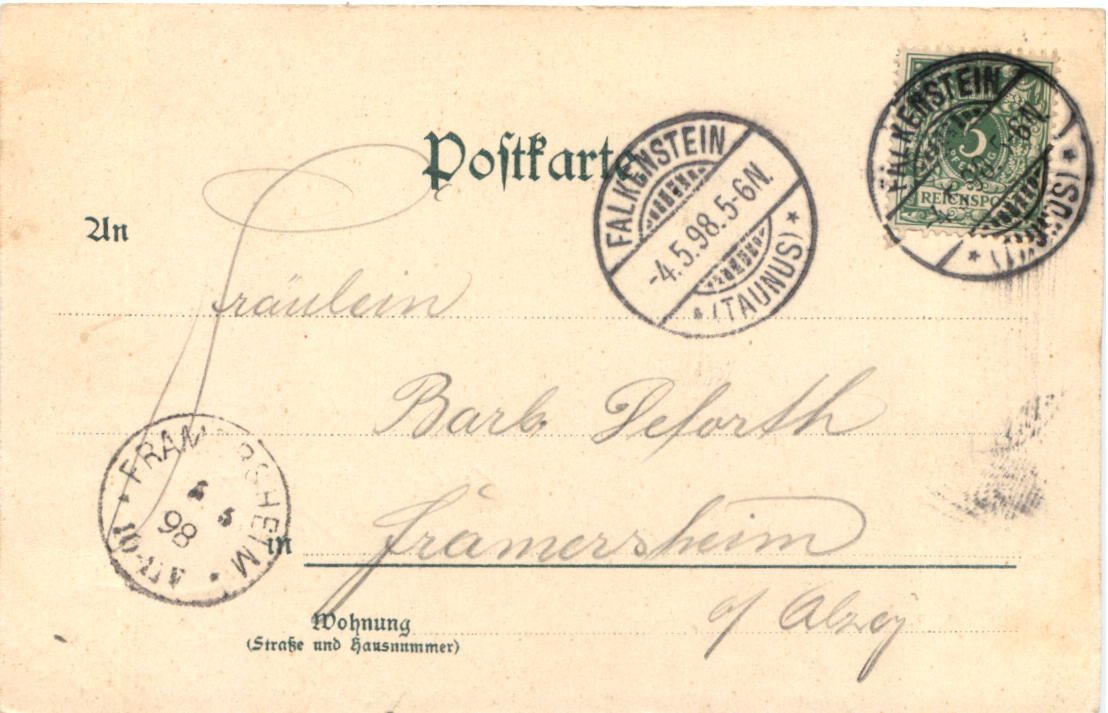 Postkarte
An
FALKENSTEIN
-4.5.98.5-6N.
*(TAUNUS)*
FALKENSTEIN
5-6N.
5
PFENNIG
REICHSPOST
Fräulein
Barb. Seforth
FRAMERSHEIM
5 5
98
in Framersheim
b/ Alzey
Wohnung
(Straße und Hausnummer)